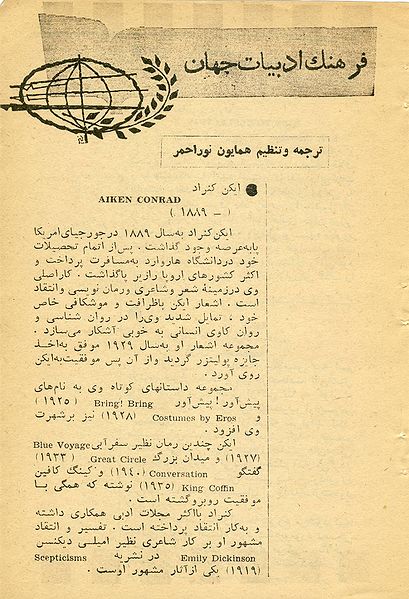 فرهنك ادبیات جهان
ترجمه وتنظیم همایون نوراحمر
ایکن کنراد
AIKEN CONRAD
( ۱۸۸۹ – )
ایکن کنراد به‌سال ۱۸۸۹ درجورجیای‌امریکا
پابه‌عرصه وجود گذاشت . پس‌از اتمام تحصیلات
خود دردانشگاه هاروارد به‌مسافرت پرداخت و
اکثر کشورهای اروپا رازیر پاگذاشت . کاراصلی
وی درزمینهٔ شعر وشاعری ورمان نویسی وانتقاد
است . اشعار ایکن باظرافت و موشکافی خاص
خود ، تمایل شدید وی‌را در روان شناسی و
روان کاوی انسانی به خوبی آشکار می‌سازد .
مجموعه اشعار او به‌سال ۱۹۲۹ موفق به‌اخذ
جایزه پولیتزر گردید واز آن پس موفقیت‌به‌ایکن
روی آورد .
مجموعه داستانهای کوتاه وی به نام‌های
پیش‌آور ! پیش‌آور Bring! Bring (۱۹۲۵)
و Costumes by Eros (۱۹۲۸) نیز برشهرت
وی افزود .
ایکن چندین رمان نظیر سفرآبی Blue Voyage
(۱۹۲۷) و میدان بزرگ Great Circle (۱۹۳۳)
گفتگو Conversation (۱۹۴۰) و کینگ کافین
King Coffin (۱۹۳۵) نوشته که همگی بـا
موفقیت روبروگشته است .
کنراد بااکثر مجلات ادبی همکاری داشته
و به‌کار انتقاد پرداخته است . تفسیر و انتقاد
مشهور او بر کار شاعری نظیر امیلی دیکنسن
Emily Dickinson در نشریه Scepticisms
(۱۹۱۹) یکی ازآثار مشهور اوست .